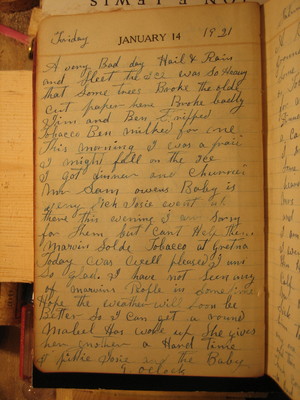 ON E LEWIS
Friday JANUARY 14 1921
A very Bad day Hail & Rain
and sleet the ICE was so Heavy
that Some trees Broke the old
cut paper here Broke badly
Jim and Ben stripped
tobacco Ben milked for me
this morning I was a fraid
I might fall on the Ice
I got dinner and churned
Mr Sam owens Baby is
very Sick Josie went up
there this evening I am Sorry
for Them but cant Help them
Marvin Solde Tobacco at Gretna
Today was well pleased I was
So glad I have not Seen any
of marvins People in Some time
Hope the weather will Soon be
Better So I can get a round
Mabel Has woke up She gives
her mother a Hand time
I pittie Josie and the Baby
9 oclock